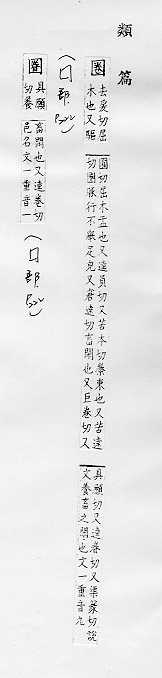 類篇
圈
去爰切屈
木也又驅
圓切屈木盂也又逵員切又苦本切稛束也又苦遠
切圈豚行不舉足皃又窘遠切畜閑也又巨卷切又
具願切又逵眷切又渠篆切說
文養畜之閑也文一重音九
(口部
圈
具願
切養
畜閑也又逵卷切
邑名文一重音一
(口部